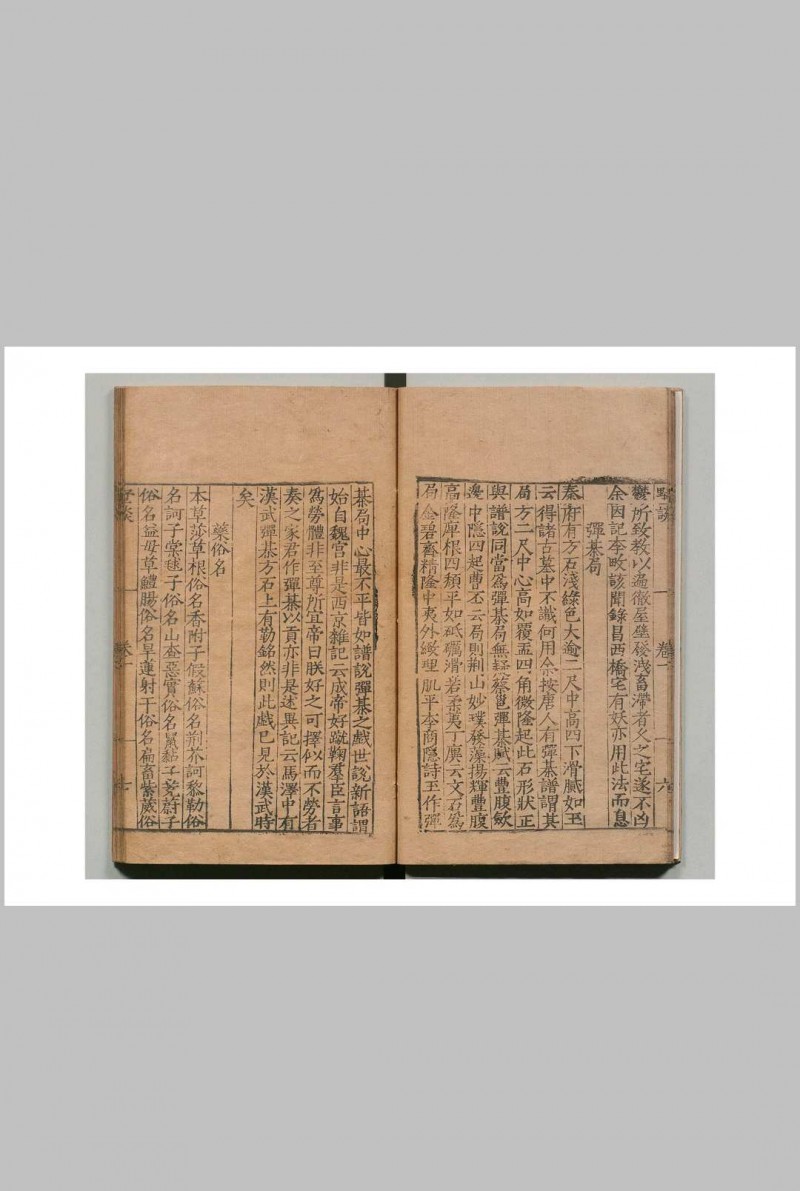 野談 卷一 六
鬱所致教以遍徹屋壁發洩畜滯者久之宅遂不凶
余因記李畋該聞錄昌西橋宅有妖亦用此法而息
彈棊局
秦府有方石淺綠色大逾二尺中高四下滑膩如玉
云得諸古墓中不識何用余按唐人有彈棊譜謂其
局方二尺中心高如覆盂四角微隆起此石形狀正
與譜說同當為彈棊局無疑蔡邕彈棊賦云豐腹斂
邊中隱四起曹丕云局則荊山妙璞發藻揚輝豐腹
高隆庳根四頹平如砥礪滑若荑丁廙云文石為
局金碧齊精隆中夷外緻理肌平李商隱詩玉作彈
棊局中心最不平皆如譜說彈棊之戲世說新語謂
始自魏宮非是西京雜記云成帝好蹴鞠羣臣言事
為勞體非至尊所宜帝曰朕好之可擇似而不勞者
奏之家君作彈棊以貢亦非是述異記云馬澤中有
漢武彈棊方石上有勒銘然則此戲已見於漢武時
矣
藥俗名
本草莎草根俗名香附子假蘇俗名荆芥訶黎勒俗
名訶子棠毬子俗名山查惡實俗名鼠黏子茺蔚子
俗名益母草鱧腸俗名旱蓮射干俗名扁畜紫葳俗
卷一 七